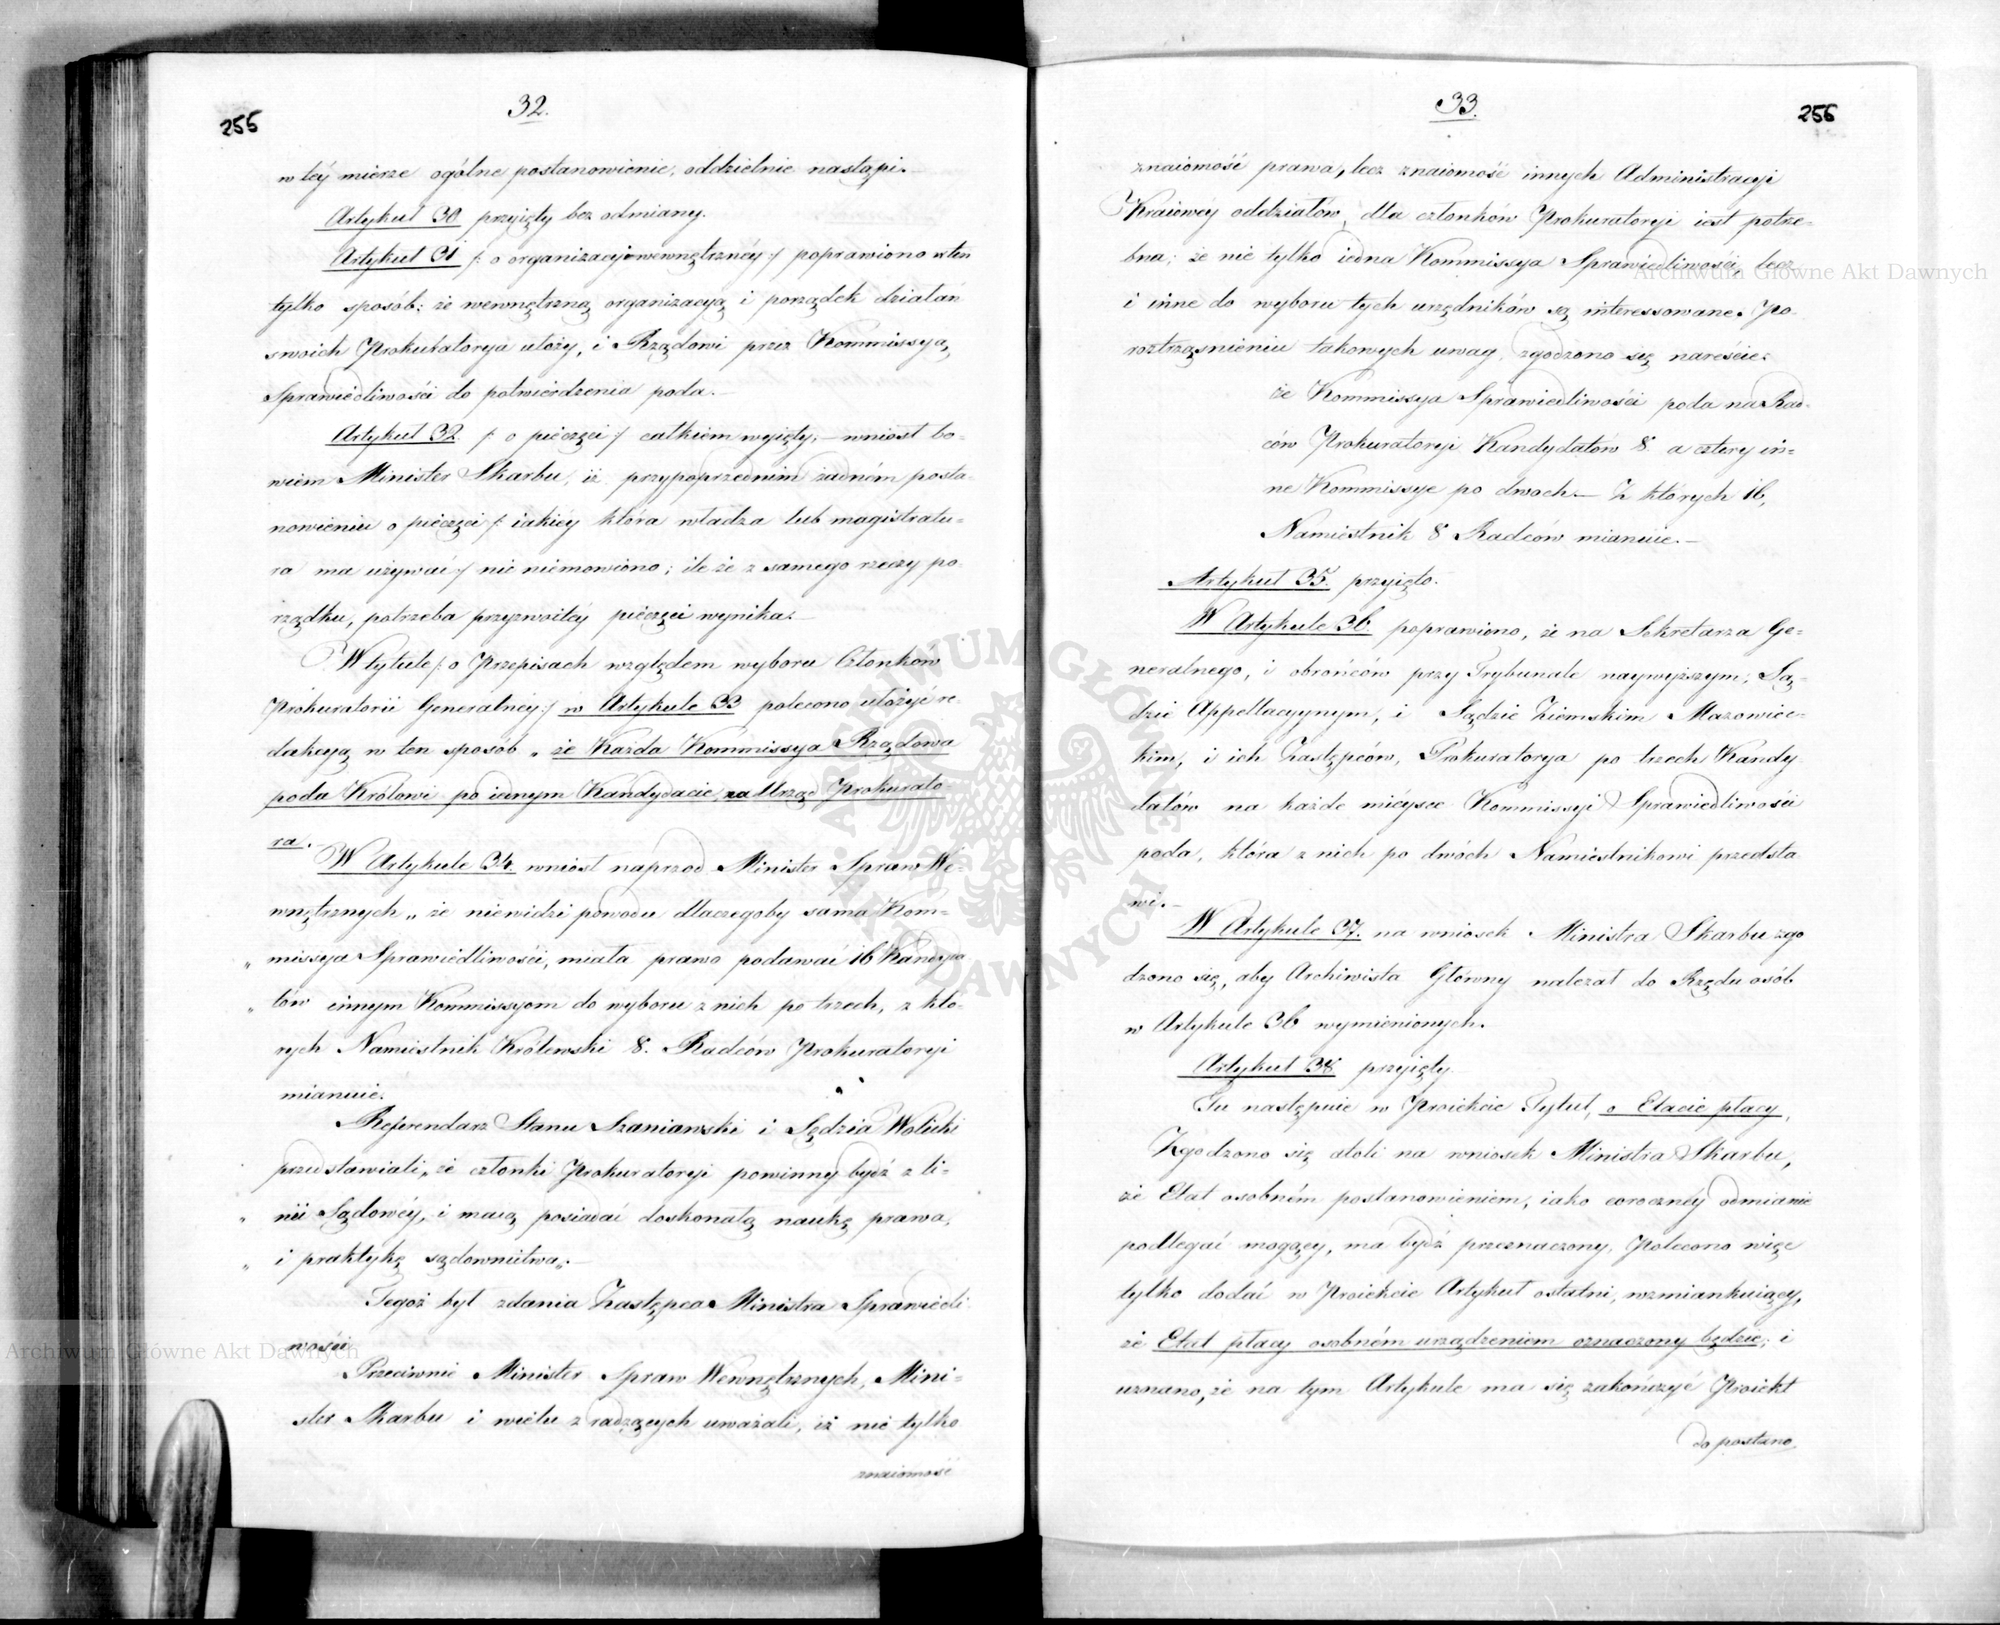 255
32.
w téy mierze ogólne postanowienie, oddzielnie nastąpi.
Artykuł 30 przyięty bez odmiany.
Artykuł 31 /: o organizacyi wewnętrznéy :/ poprawiono w ten
tylko sposób: że wewnętrzną organizacyą i porządek działań
swoich Prokuratorya ułoży, i Rządowi przez Kommissyą
Sprawiedliwości do potwierdzenia poda.
Artykuł 32. /: o pieczęci :/ całkiem wyięty; – wniosł bo-
wiem Minister Skarbu, iż przy poprzednim żadném posta-
nowieniu o pieczęci /: iakiéy która władza lub magistratu-
ra ma używać :/ nic niemowiono; ile że z samego rzeczy po-
rządku, potrzeba przyzwoitéy pieczęci wynika.
W tytule /: o Przepisach względem wyboru Członków
Prokuratorii Generalnéy :/ w Artykule 33 polecono ułożyć re-
dakcyą w ten sposób „ że Każda Kommissya Rządowa
poda Królowi po iednym Kandydacie na Urząd Prokurato
ra.
W Artykule 34. wniosł naprzod Minister Spraw We-
wnętrznych „ że niewidzi powodu dlaczegoby sama Kom-
„ missya Sprawiedliwości, miała prawo podawać 16 Kandyda
„ tów innym Kommissyom do wyboru z nich po trzech, z któ-
rych Namiestnik Królewski 8. Radców Prokuratoryi
mianuie.
Referendarz Stanu Szaniawski i Sędzia Wolicki
przedstawiali, „ że członki Prokuratoryi powinny bydź z li-
„ nii Sądowéy, i maią posiadać doskonałą naukę prawa,
„ i praktykę sądownictwa„. –
Tegoż był zdania Zastępca Ministra Sprawiedli
wości
Przeciwnie Minister Spraw Wewnętrznych, Mini-
ster Skarbu i wielu z radzących uważali, iż nie tylko
znaiomość
33.
256
znaiomość prawa, lecz znaiomość innych Administracyi
Kraiowéy oddziałów, dla członków Prokuratoryi iest potrze-
bna; że nie tylko iedna Kommissya Sprawiedliwości, lecz
i inne do wyboru tych urzędników są interessowane. Po
roztrząśnieniu takowych uwag, zgodzono się nareście:
że Kommissya Sprawiedliwości poda na Rad-
ców Prokuratoryi Kandydatów 8. a cztery in-
ne Kommissye po dwoch. – Z których 16,
Namiestnik 8 Radców mianuie. –
Artykuł 35. przyięto.
W Artykule 36. poprawiono, że na Sekretarza Ge-
neralnego, i obrońców przy Trybunale naywyższym, Są-
dzie Appellacyynym, i Sądzie Ziemskim Mazowiec-
kim, i ich Zastępców, Prokuratorya po trzech Kandy-
datów na każde mieysce Kommissyi Sprawiedliwości
poda, która z nich po dwóch Namiestnikowi przedsta
wi. –
W Artykule 37. na wniosek Ministra Skarbu zgo
dzono się, aby Archiwista Główny należał do Rzędu osób
w Artykule 36 wymienionych.
Artykuł 38 przyięty
Tu następuie w Proiekcie Tytuł, o Etacie płacy,
Zgodzono się atoli na wniosek Ministra Skarbu,
że Etat osobném postanowieniem, iako corocznéy odmianie
podlegać mogący, ma bydź przeznaczony, Polecono więc
tylko dodać w Proiekcie Artykuł ostatni, wzmiankuiący,
że Etat płacy osobném urządzeniem oznaczony będzie; i
uznano, że na tym Artykule ma się zakończyć Proiekt
do postano
Archiwum Główne Akt Dawnych
Archiwum Główne Akt Dawnych
ARCHIWUM GŁÓWNE AKT DAWNYCH